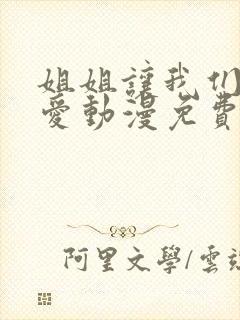 姐姐讓我们
愛動漫免費
阿里文學/雲